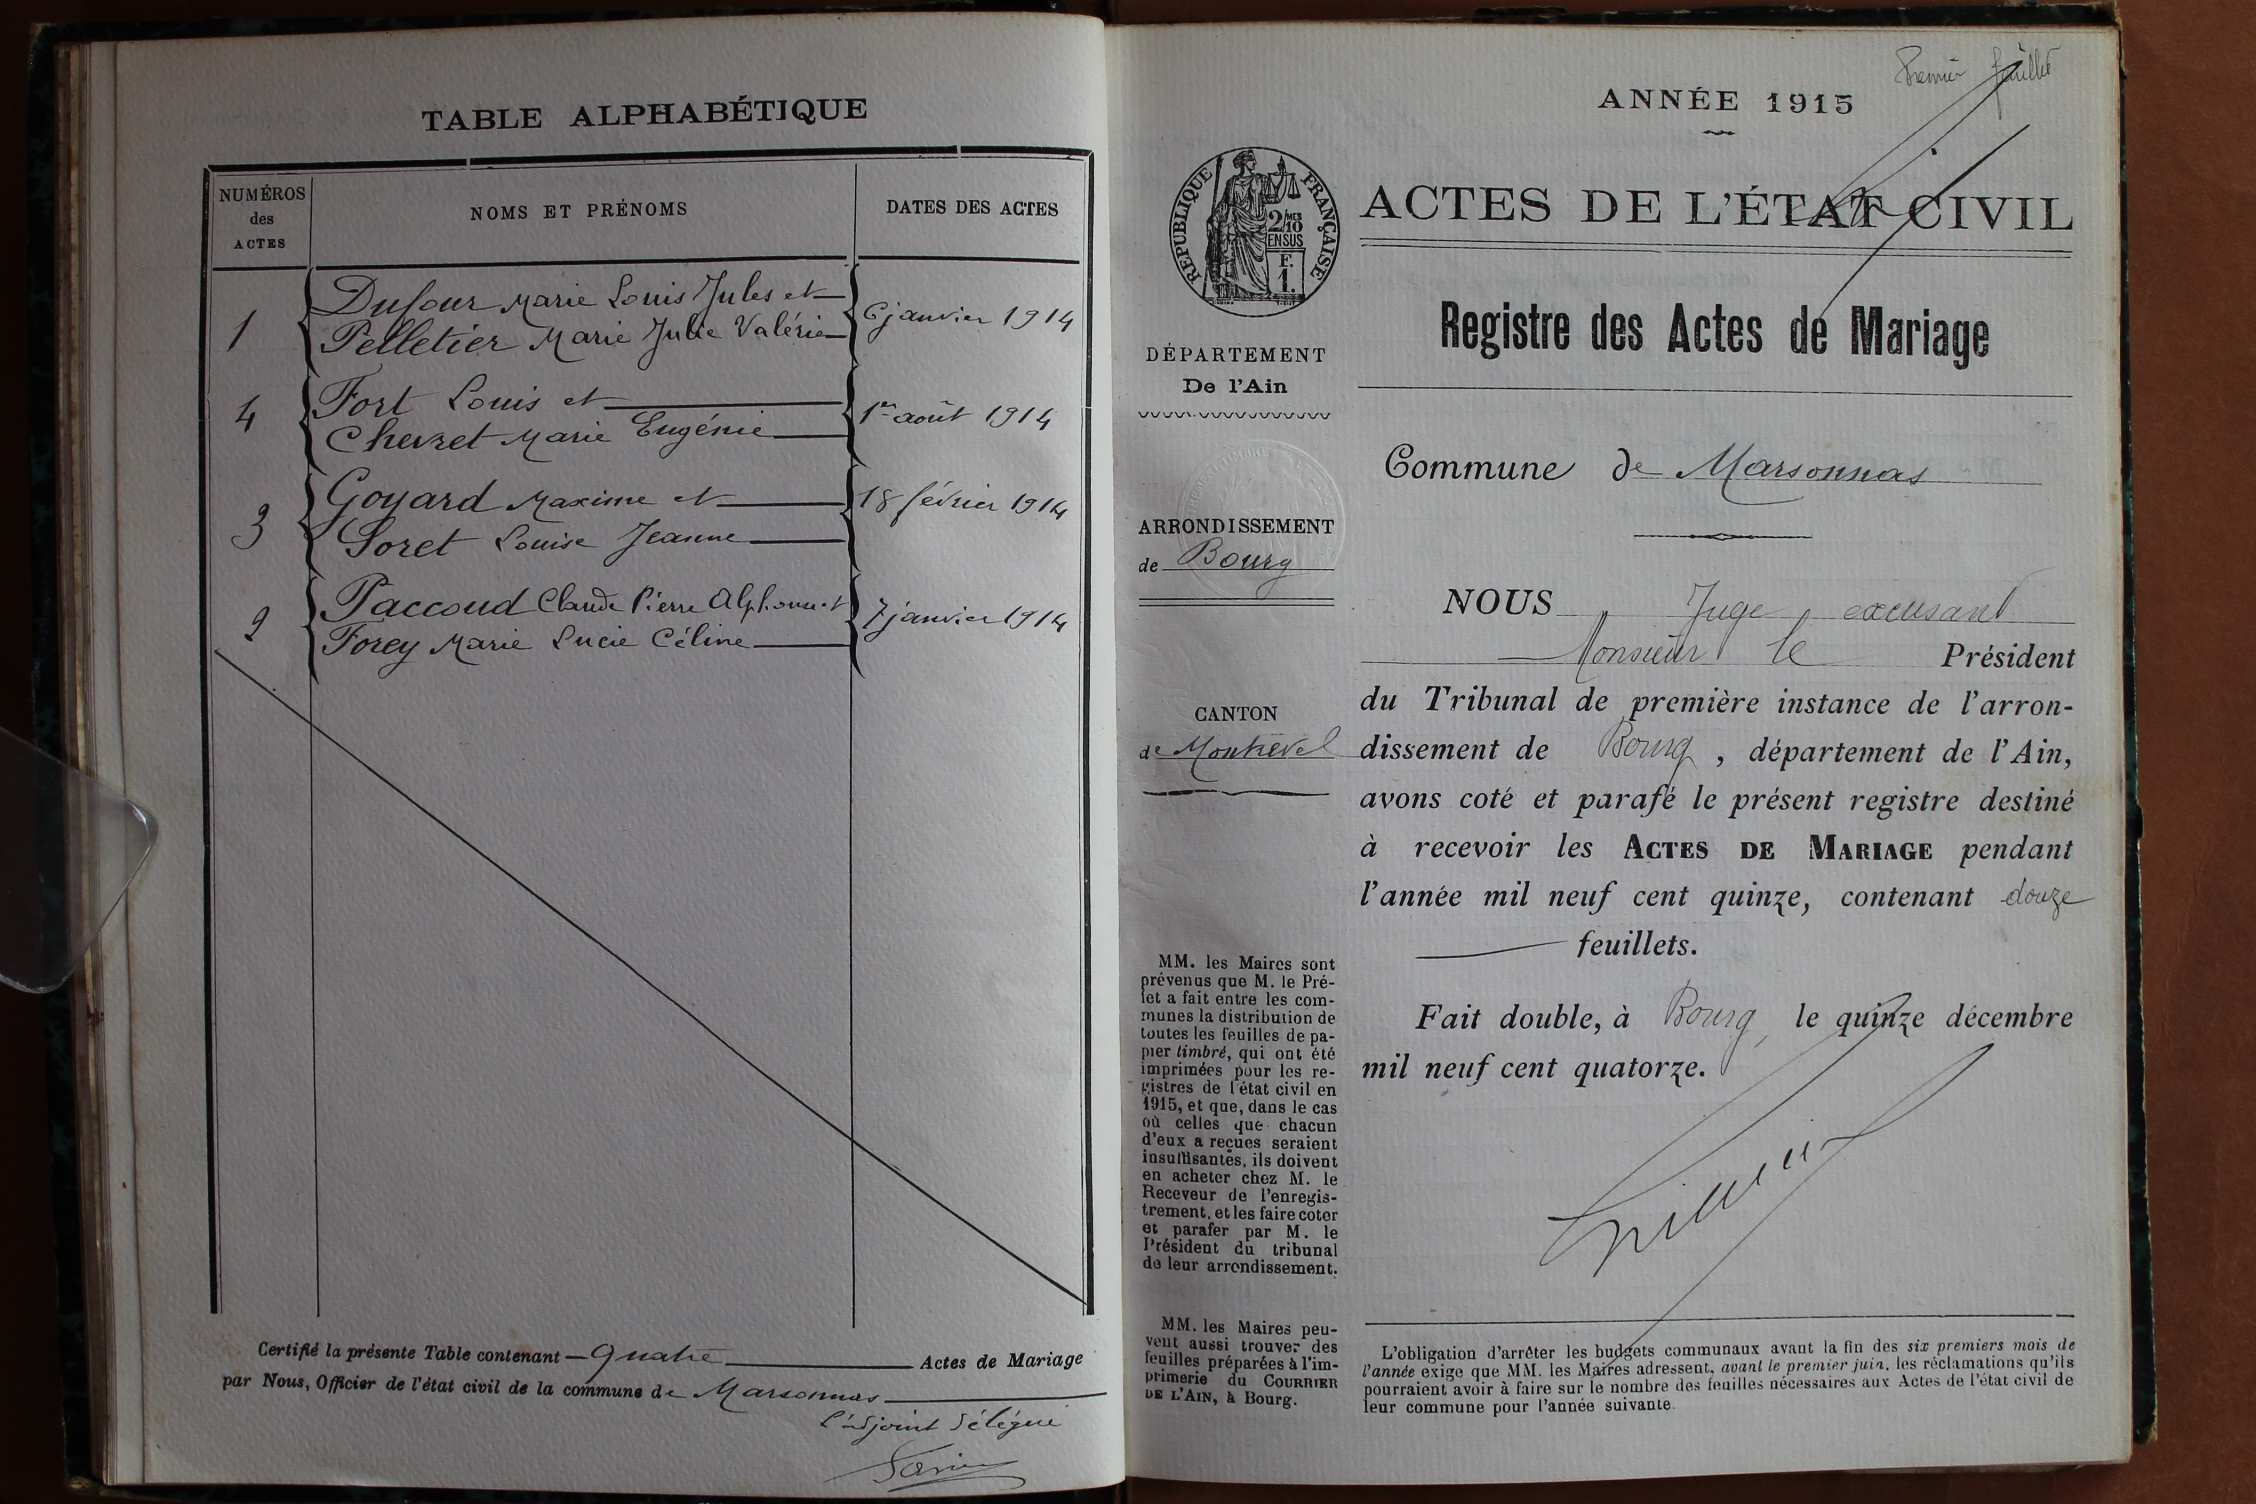 TABLE ALPHABÉTIQUE
NUMÉROS
des
ACTES
NOMS ET PRÉNOMS
DATES DES ACTES
1
Dufour Marie Louis Jules et
Pelletier Marie Julie Valérie
6 janvier 1914
4
Fort Louis et
Chevret Marie Eugénie
1er août 1914
3
Goyard Maxime et
Soret Louise Jeanne
18 février 1914
2
Paccoud Claude Pierre Alphonse et
Forey Marie Lucie Céline
7 janvier 1914
Certifié la présente Table contenant Quatre Actes de Mariage
par Nous, Officier de l'état civil de la commune de Marsonnas
L'adjoint délégué
Premier feuillet
ANNÉE 1915
RÉPUBLIQUE FRANÇAISE
2/10 MES
EN SUS
F.
1.
ACTES DE L'ÉTAT CIVIL
Registre des Actes de Mariage
DÉPARTEMENT
De l'Ain
Commune de Marsonnas
ARRONDISSEMENT
de Bourg
CANTON
de Montrevel
NOUS Juge excusant
Monsieur le Président
du Tribunal de première instance de l'arron-
dissement de Bourg, département de l'Ain,
avons coté et parafé le présent registre destiné
à recevoir les ACTES DE MARIAGE pendant
l'année mil neuf cent quinze, contenant douze
feuillets.
Fait double, à Bourg, le quinze décembre
mil neuf cent quatorze.
MM. les Maires sont
prévenus que M. le Pré-
fet a fait entre les com-
munes la distribution de
toutes les feuilles de pa-
pier timbré, qui ont été
imprimées pour les re-
gistres de l'état civil en
1915, et que, dans le cas
où celles que chacun
d'eux a reçues seraient
insuffisantes, ils doivent
en acheter chez M. le
Receveur de l'enregis-
trement, et les faire coter
et parafer par M. le
Président du tribunal
de leur arrondissement.
MM. les Maires peu-
vent aussi trouver des
feuilles préparées à l'im-
primerie du COURRIER
DE L'AIN, à Bourg.
L'obligation d'arrêter les budgets communaux avant la fin des six premiers mois de
l'année exige que MM. les Maires adressent, avant le premier juin, les réclamations qu'ils
pourraient avoir à faire sur le nombre des feuilles nécessaires aux Actes de l'état civil de
leur commune pour l'année suivante.